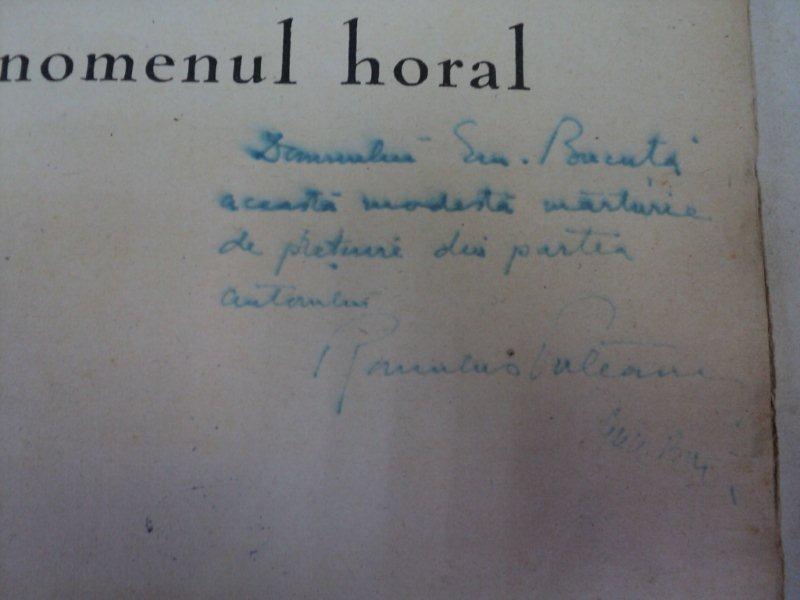 nomenul horal
Domnului Em. Bucuța
această modestă mărturie
de prețuire din partea
autorului
Romulus Vulcănescu